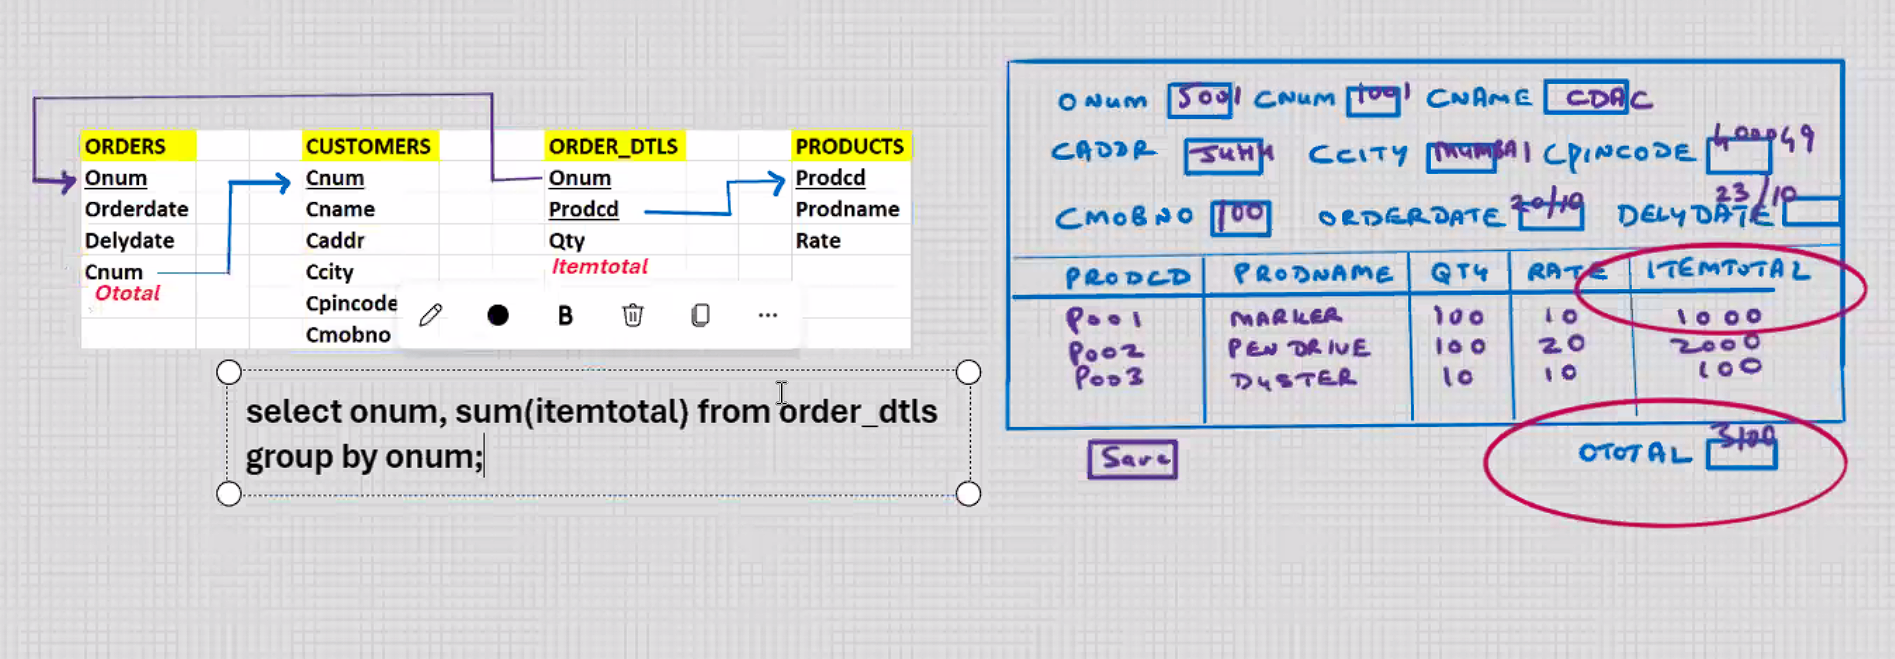 ORDERS CUSTOMERS ORDER_DTLS PRODUCTS
Onum Cnum Onum Prodcd
Orderdate Cname Prodcd Prodname
Delydate Caddr Qty Rate
Cnum Ccity Itemtotal
Ototal Cpincode
Cmobno
B
select onum, sum(itemtotal) from order_dtls
group by onum;
ONUM 5001 CNUM 1001 CNAME CDAC
CADDR JUHU CCITY MUMBAI CPINCODE 400049
CMOBNO 100 ORDERDATE 20/10 DELYDATE 23/10
PRODCD PRODNAME QTY RATE ITEMTOTAL
P001 MARKER 100 10 1000
P002 PEN DRIVE 100 20 2000
P003 DUSTER 10 10 100
Save OTOTAL 3100